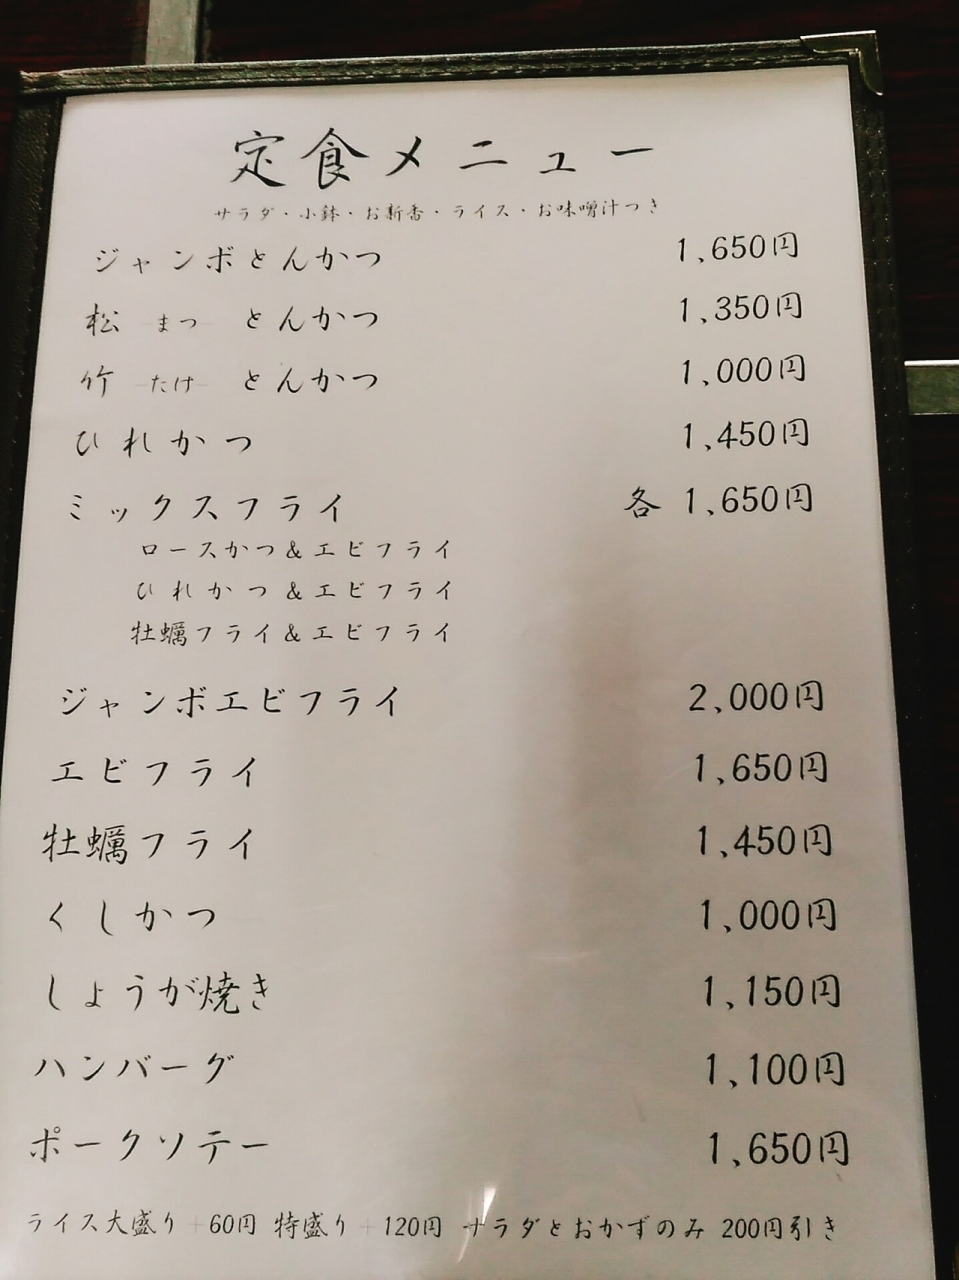 定食メニュー
サラダ・小鉢・お新香・ライス・お味噌汁つき
ジャンボとんかつ 1,650円
松 -まつ- とんかつ 1,350円
竹 -たけ- とんかつ 1,000円
ひれかつ 1,450円
ミックスフライ 各 1,650円
ロースかつ&エビフライ
ひれかつ&エビフライ
牡蠣フライ&エビフライ
ジャンボエビフライ 2,000円
エビフライ 1,650円
牡蠣フライ 1,450円
くしかつ 1,000円
しょうが焼き 1,150円
ハンバーグ 1,100円
ポークソテー 1,650円
ライス大盛り+60円 特盛り+120円 サラダとおかずのみ 200円引き